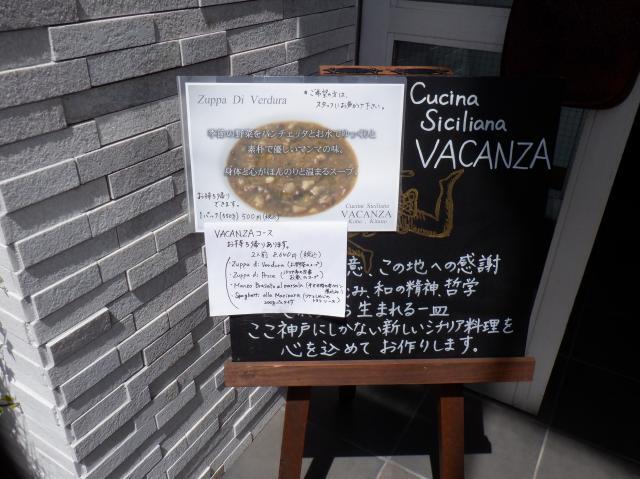 Zuppa Di Verdura
*ご希望の方は、
スタッフにお声がけ下さい。
季節の野菜をパンチェッタとお水でゆっくりと
素朴で優しいマンマの味。
身体と心がほんのりと温まるスープ。
お持ち帰り
できます。
1パック 500円(税込)
Cucina Siciliana
VACANZA
Kobe, Kitano
VACANZAコース
お持ち帰りあります。
2人前
・Zuppa di Verdura
・Zuppa di Pesce
・Manzo Brasato al marsala
・Spaghetti alla Marinara
Cucina
Siciliana
VACANZA
意、この地への感謝
み、和の精神、哲学
生まれる一皿
ここ神戸にしかない新しいシチリア料理を
心を込めてお作りします。